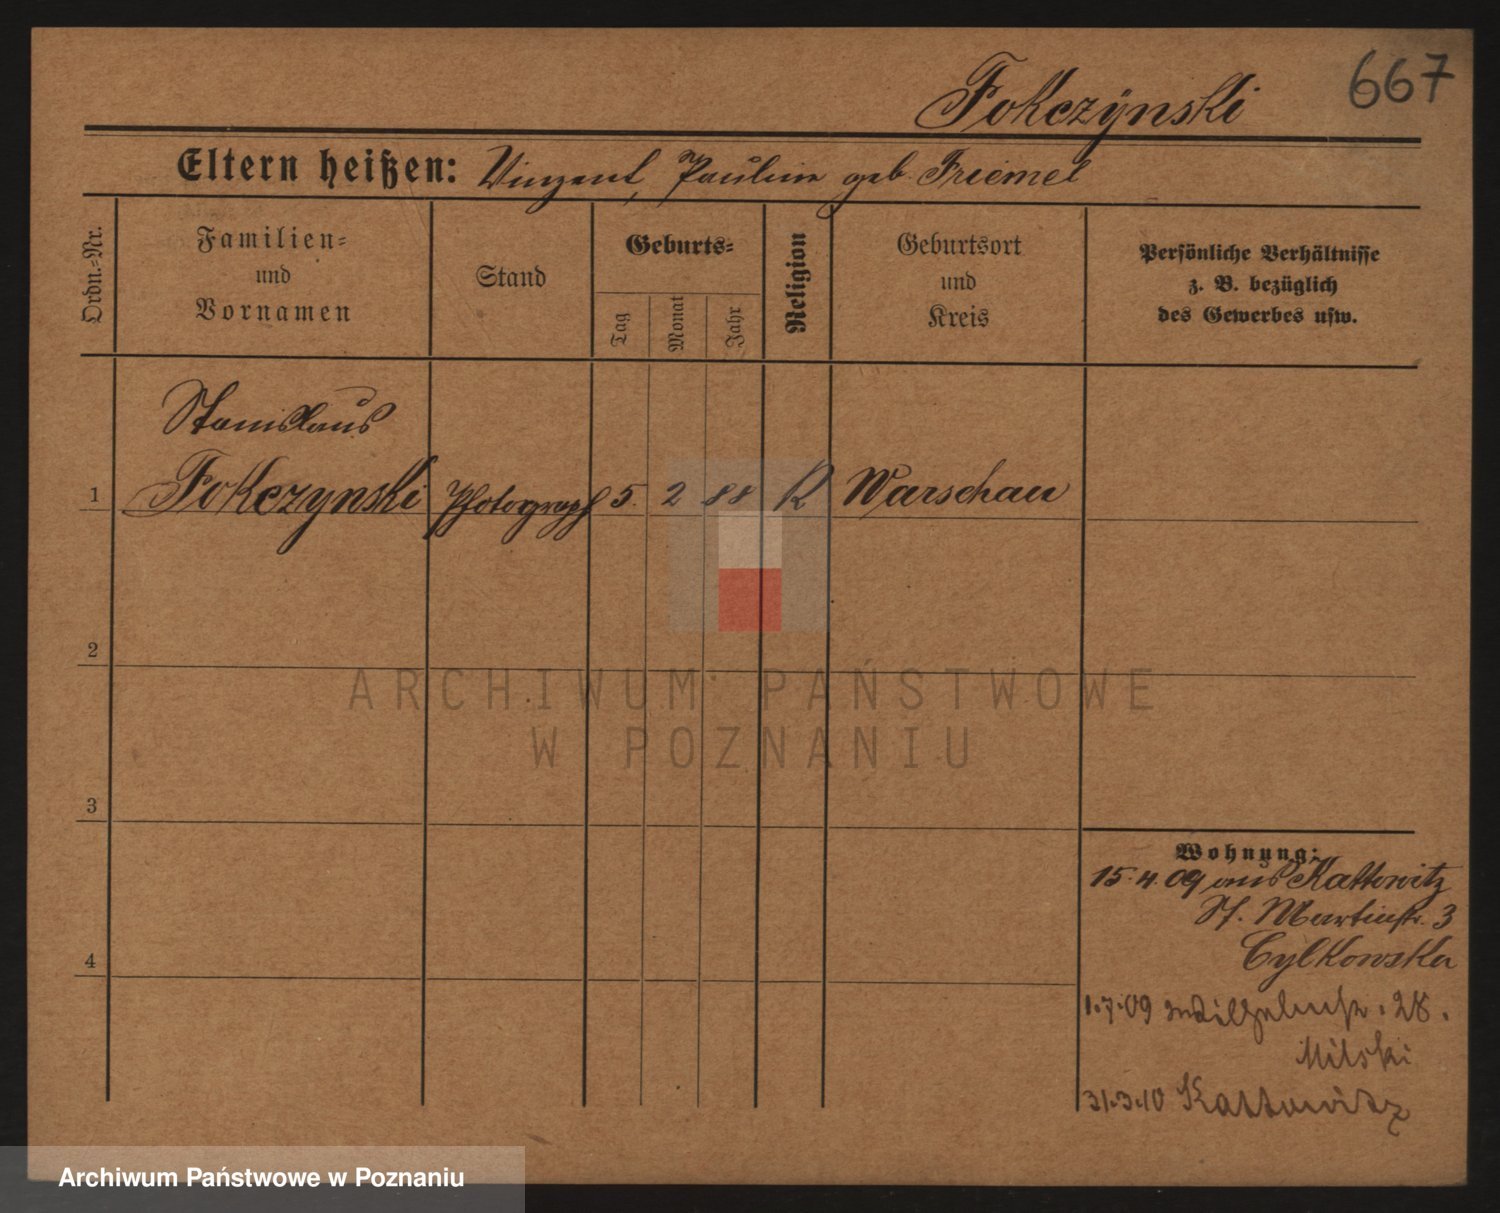 Fokczynski
667
Eltern heißen: Vinzent, Pauline geb. Friemel
Ordn.-Nr.
Familien-
und
Vornamen
Stand
Geburts-
Tag
Monat
Jahr
Religion
Geburtsort
und
Kreis
Persönliche Verhältnisse
z. B. bezüglich
des Gewerbes usw.
Stanislaus
1 Fokczynski Photograph 5. 2 88 K Warschau
2
3
4
Wohnung:
15.4.09 aus Kattowitz
St. Martinstr. 3
Cylkowska
1.7.09 Wilhelmstr. 28.
Milski
31.3.10 Kattowitz
ARCHIWUM PAŃSTWOWE
W POZNANIU
Archiwum Państwowe w Poznaniu